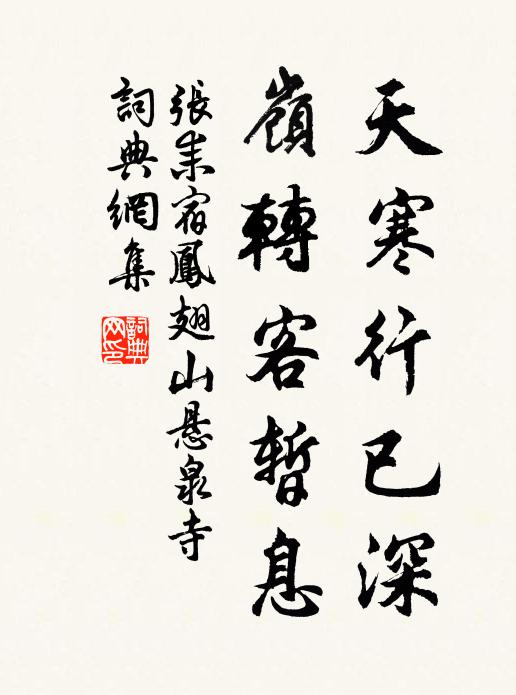 天寒行已深
嶺轉客暫息
張耒宿鳳翅山悬泉寺
詞典網集
詞典
网印